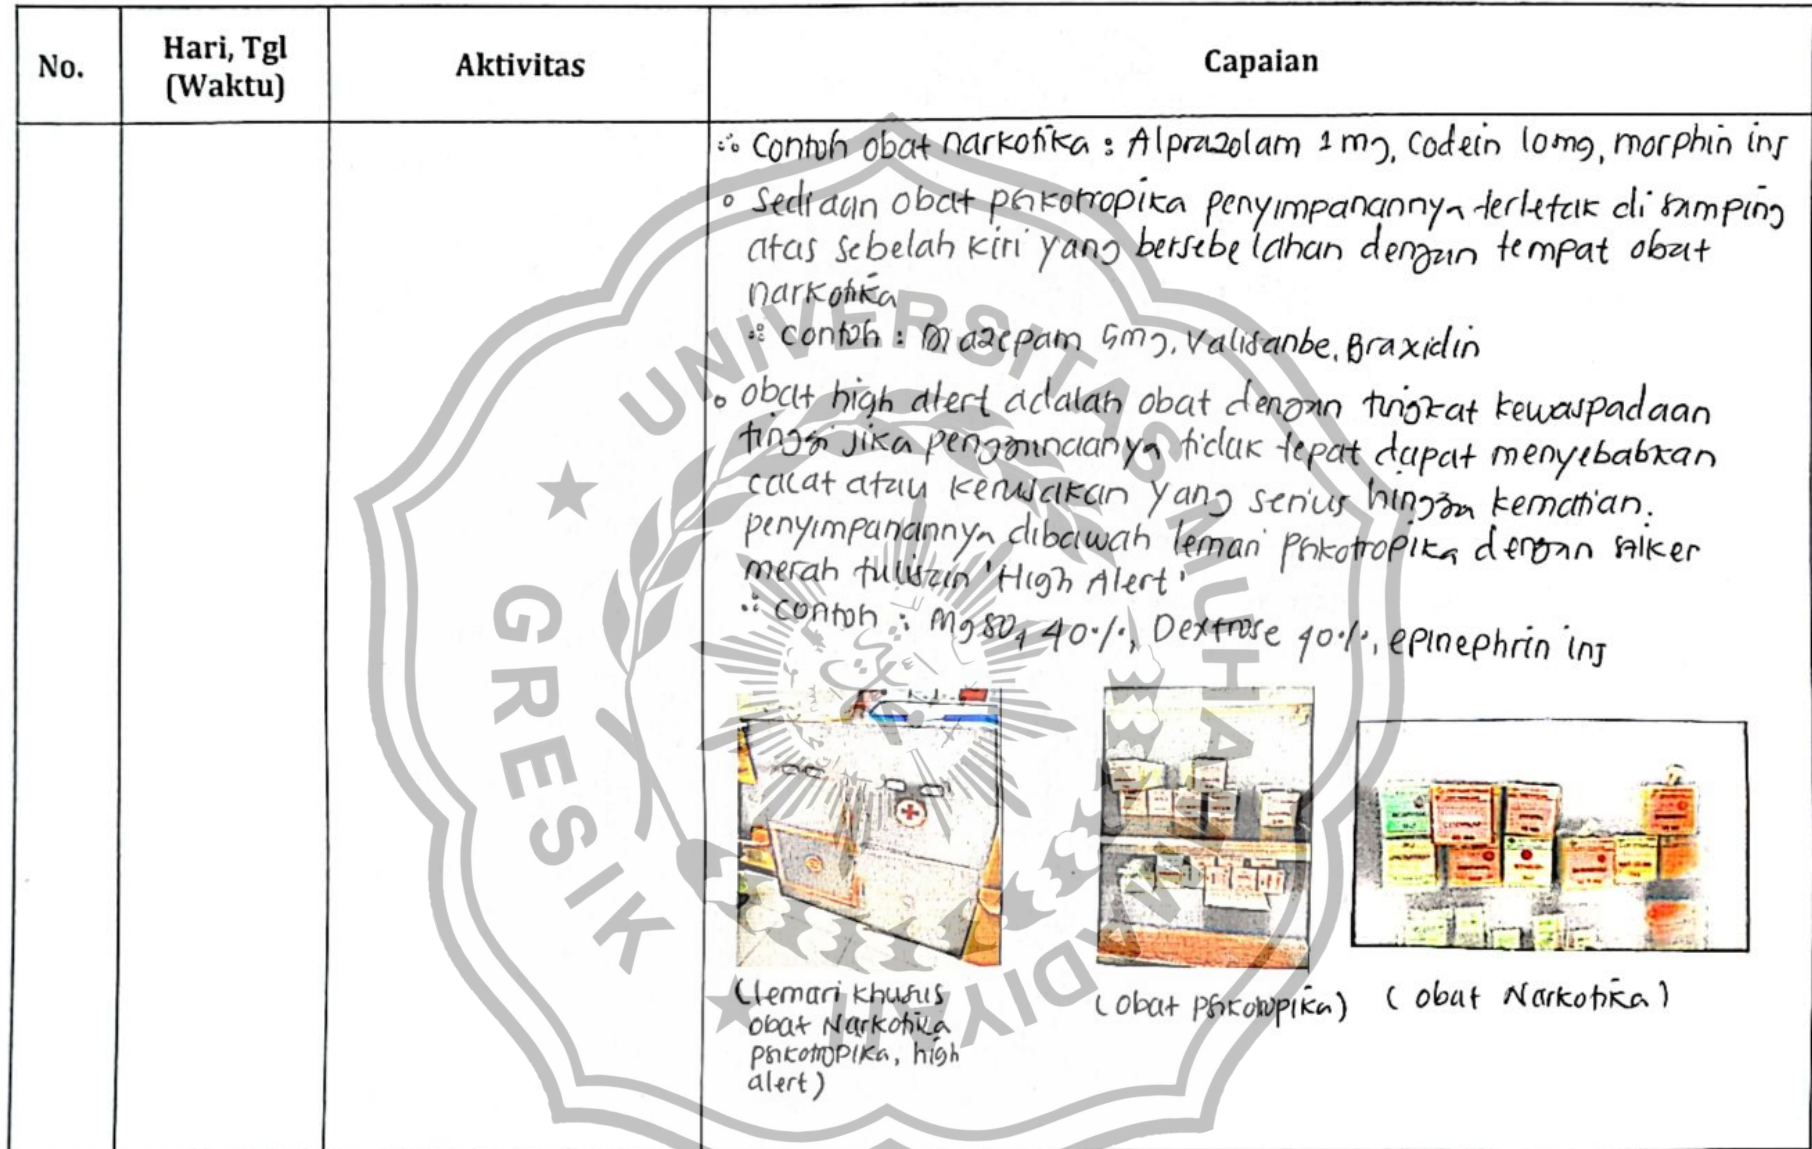 No.
Hari, Tgl
(Waktu)
Aktivitas
Capaian
∴ Contoh obat narkotika : Alprazolam 1 mg, Codein 10mg, morphin inj
° Sediaan obat psikotropika penyimpanannya terletak di samping
atas sebelah kiri yang bersebelahan dengan tempat obat
narkotika
∴ Contoh : Diazepam 5mg, Valisanbe, Braxidin
° obat high alert adalah obat dengan tingkat kewaspadaan
tinggi jika penggunaanya tidak tepat dapat menyebabkan
cacat atau kerusakan yang serius hingga kematian.
penyimpanannya dibawah lemari psikotropika dengan stiker
merah tulisan 'High Alert'
∴ contoh : MgSO4 40%, Dextrose 40%, epinephrin inj
(lemari khusus
obat Narkotika
psikotropika, high
alert)
(obat psikotropika)
(obat Narkotika)
UNIVERSITAS MUHAMMADIYAH
GRESIK